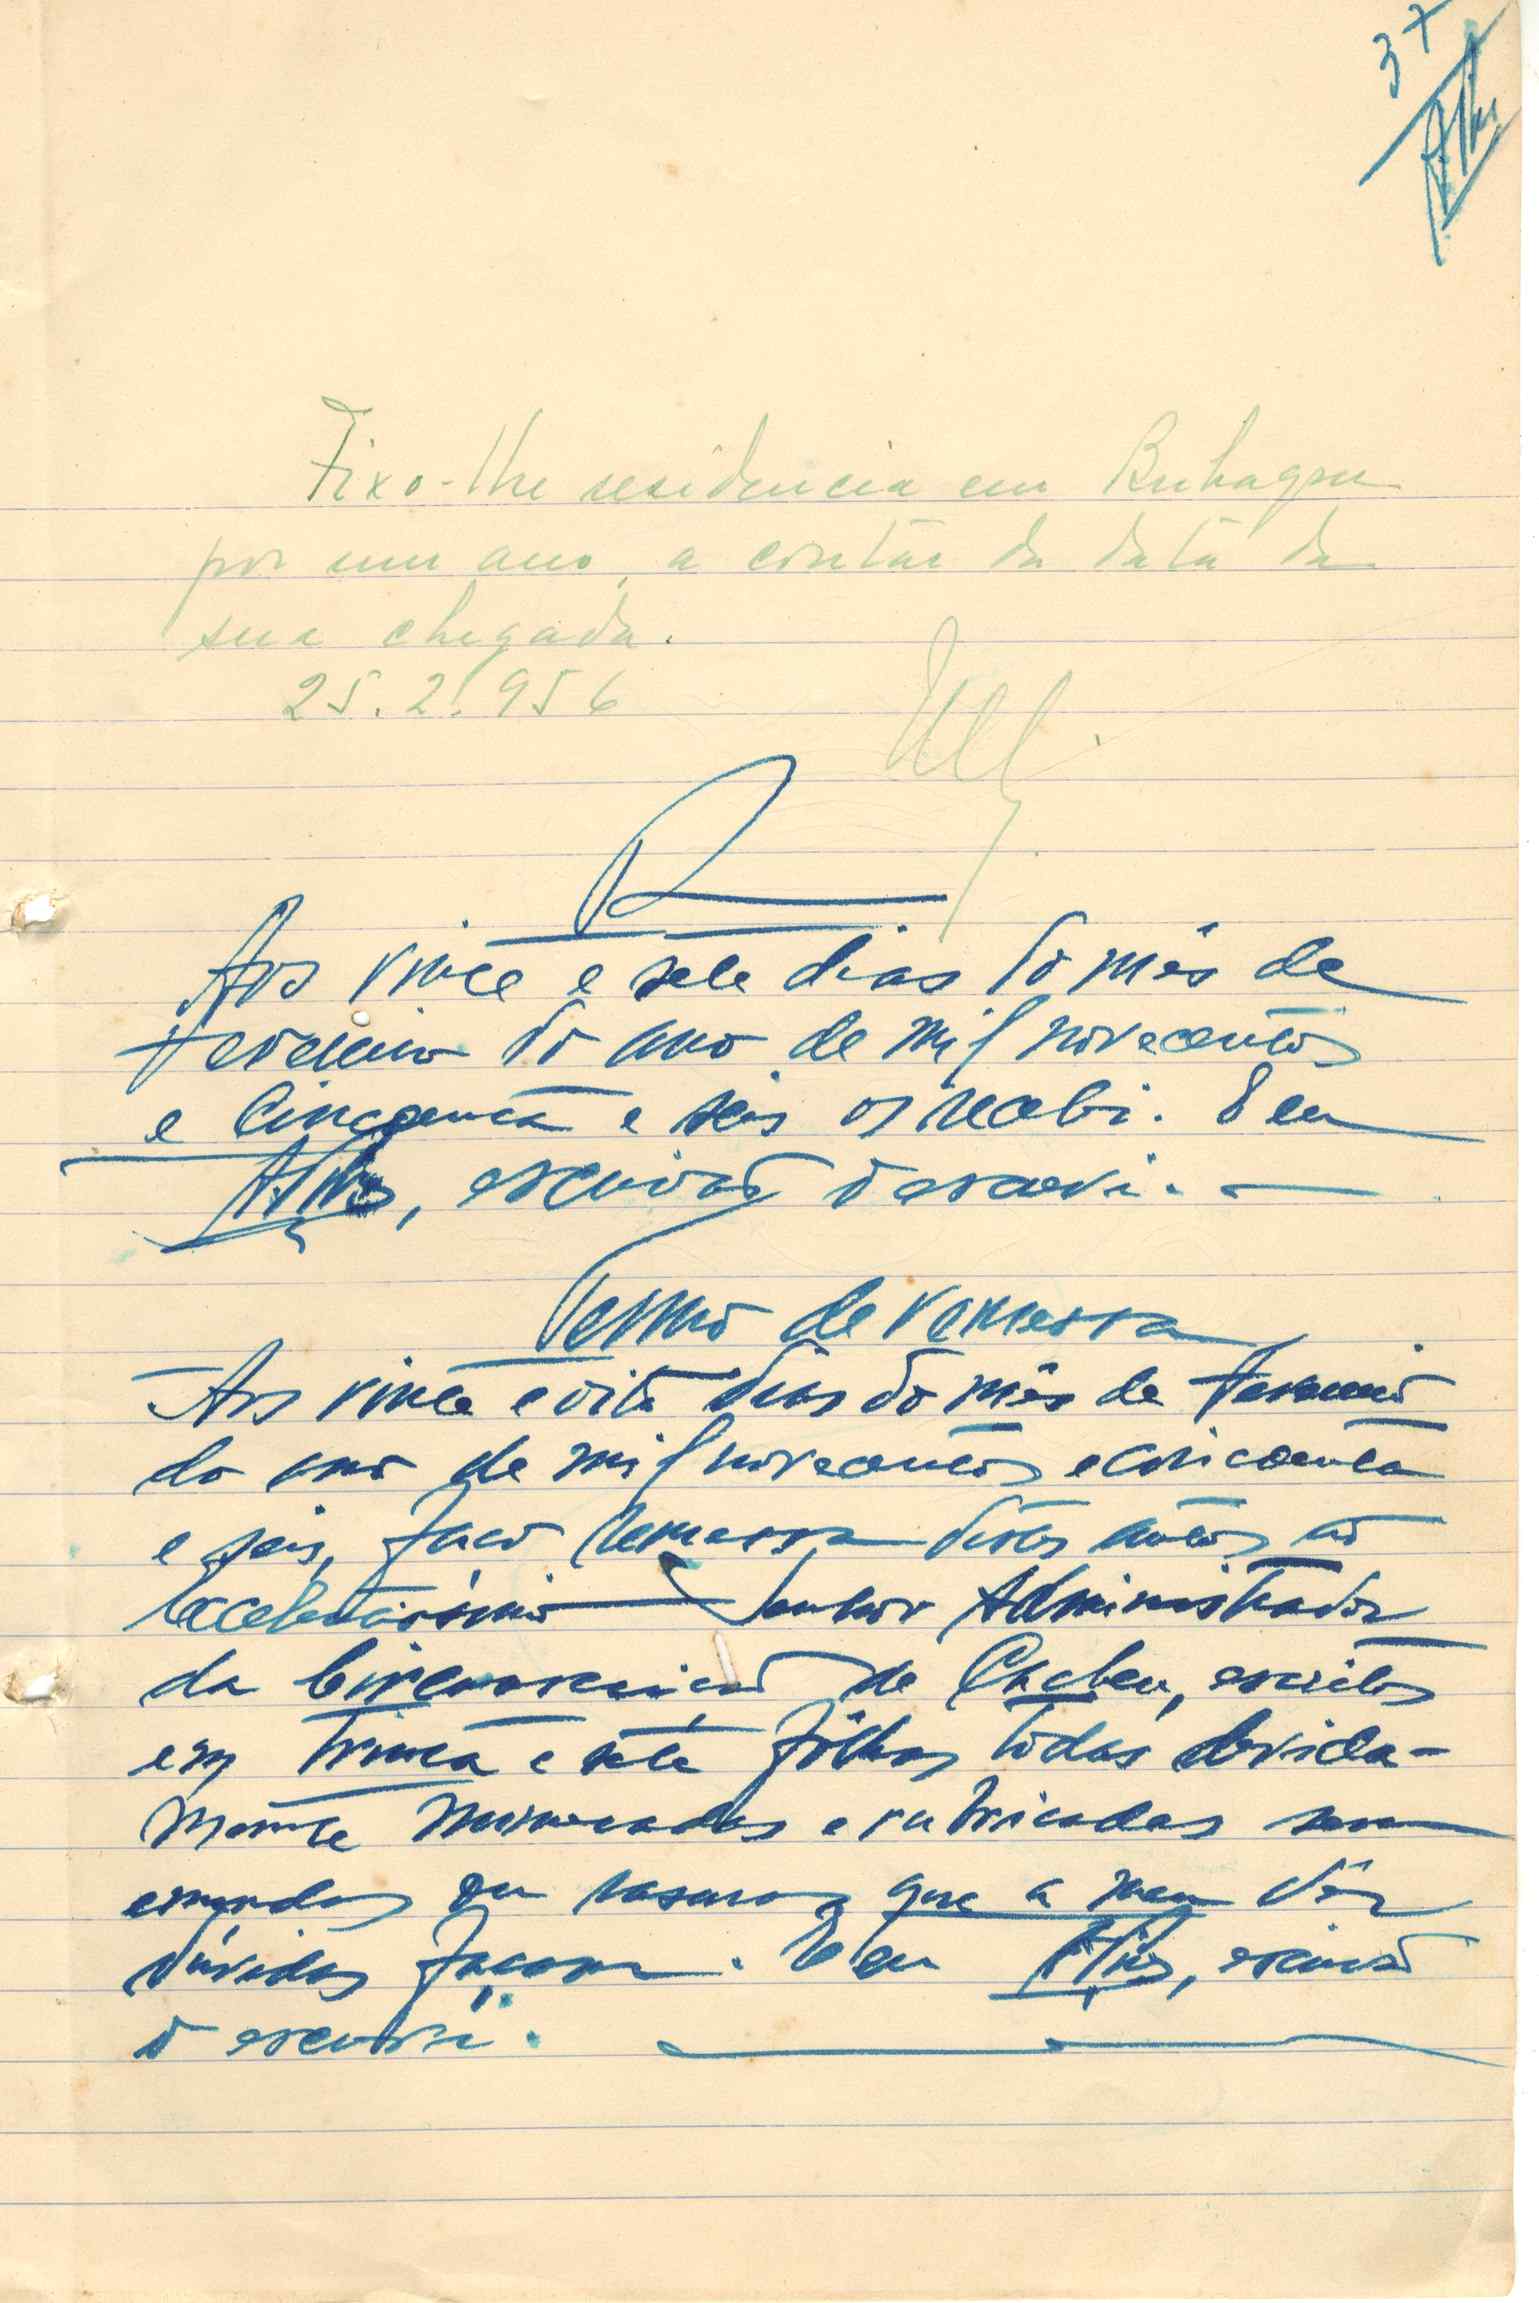 37
Fixo-lhe residencia em
por um ano, a contar da data da
sua chegada.
25.2.956
R
Aos vinte e sete dias do mês de
Fevereiro do ano de mil novecentos
e cincoenta e seis os recebi. E eu
, escrivão o escrevi.
Termo de remessa
Aos vinte e oito dias do mês de Fevereiro
do ano de mil novecentos e cincoenta
e seis, faço remessa dêstes autos ao
Excelentíssimo Senhor Administrador
da Circunscrição de Cacheu, escritos
em trinta e sete fôlhas todas devida-
mente numeradas e rubricadas sem
emendas ou rasuras que a meu vêr
dúvidas façam. E eu , escrivão
o escrevi.